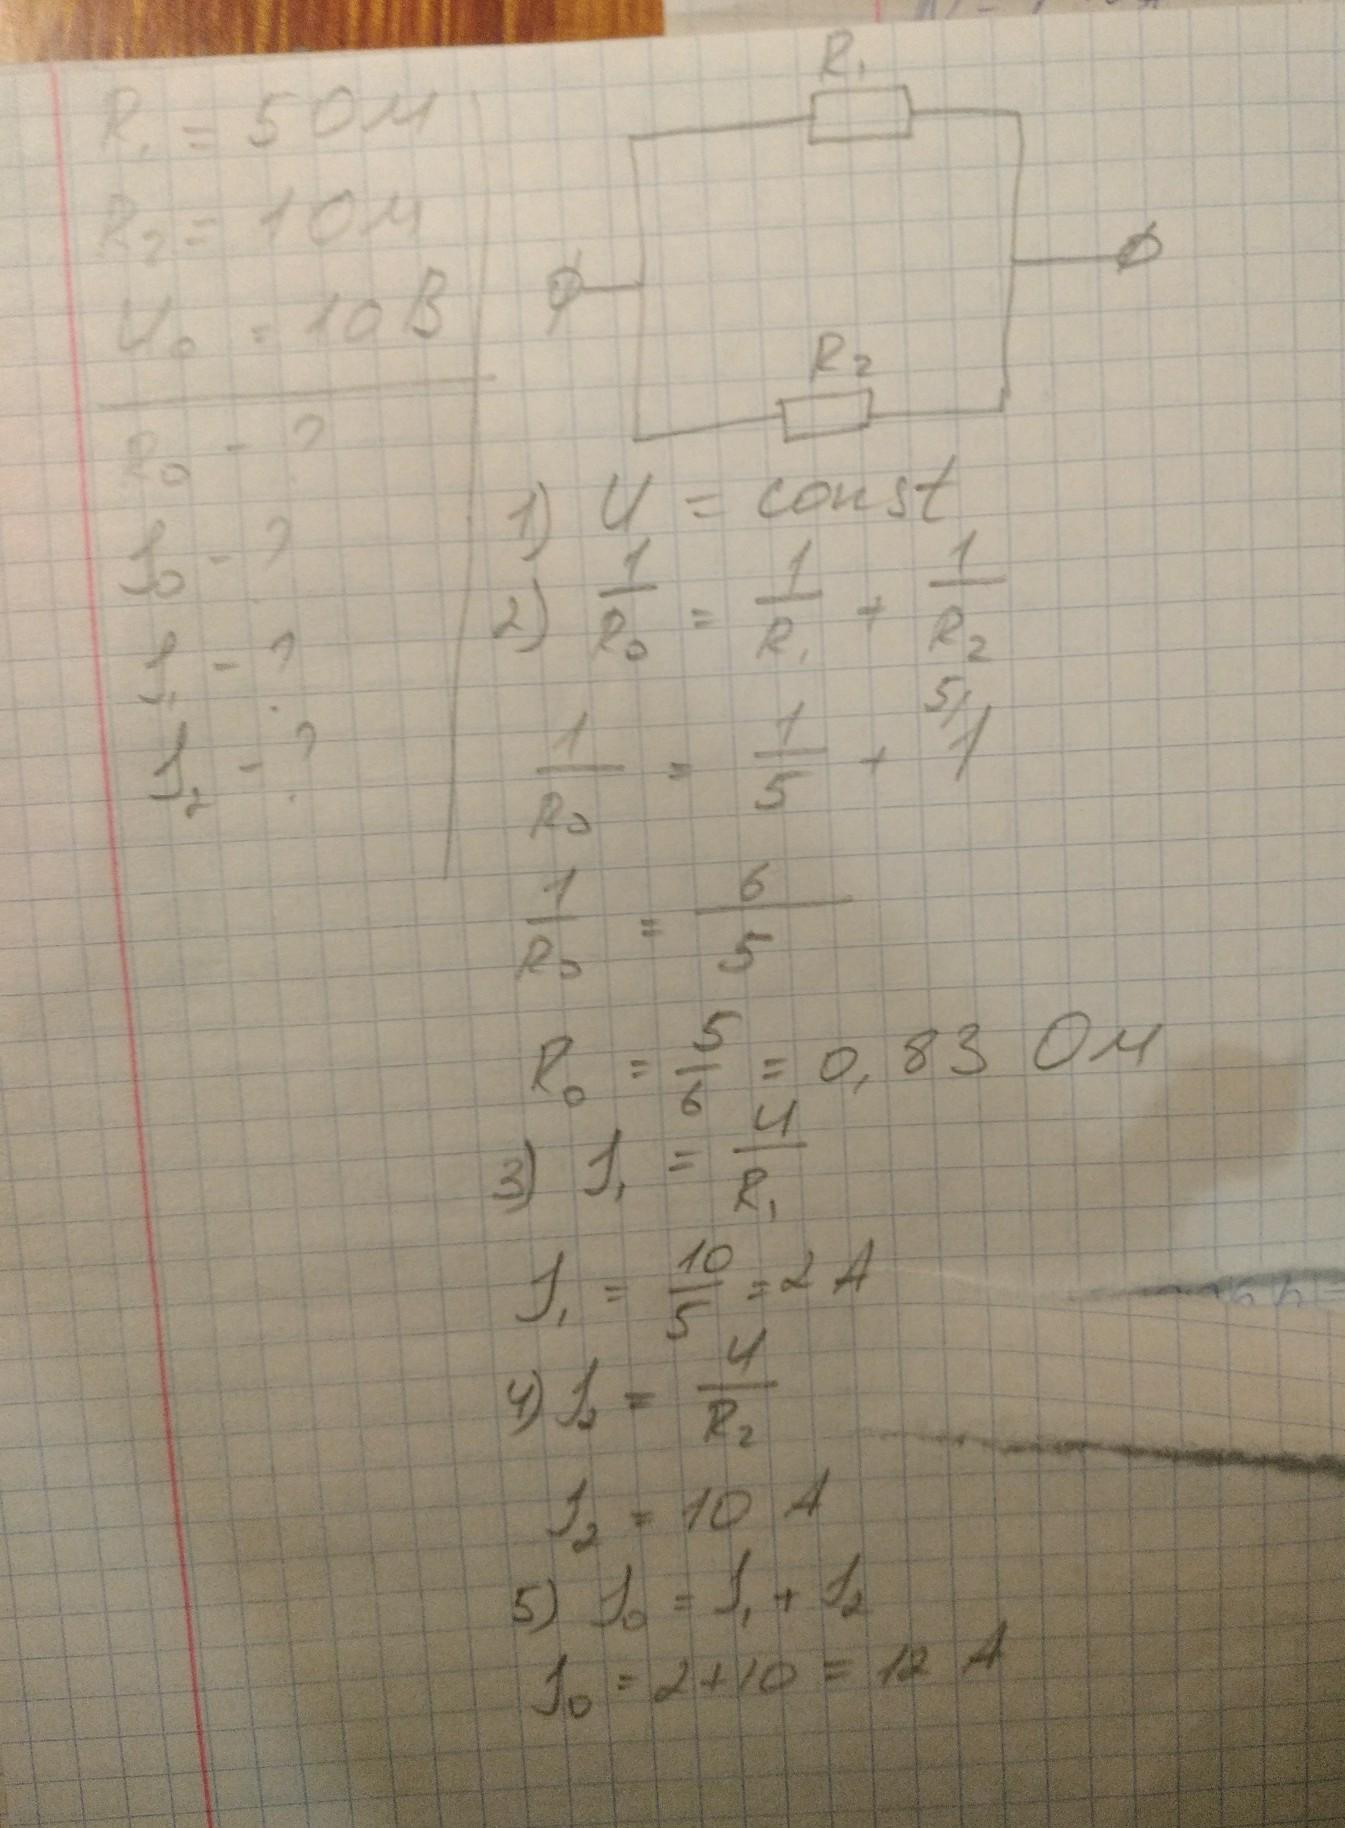 R₁ = 5 Ом
R₂ = 1 Ом
U₀ = 10 В
R₀ - ?
J₀ - ?
J₁ - ?
J₂ - ?
R₁
R₂
1) U = const
2) 1/R₀ = 1/R₁ + 1/R₂
1/R₀ = 1/5 + 5/ 1
1/R₀ = 6/5
R₀ = 5/6 = 0,83 Ом
3) J₁ = U/R₁
J₁ = 10/5 = 2 А
4) J₂ = U/R₂
J₂ = 10 А
5) J₀ = J₁ + J₂
J₀ = 2+10 = 12 А